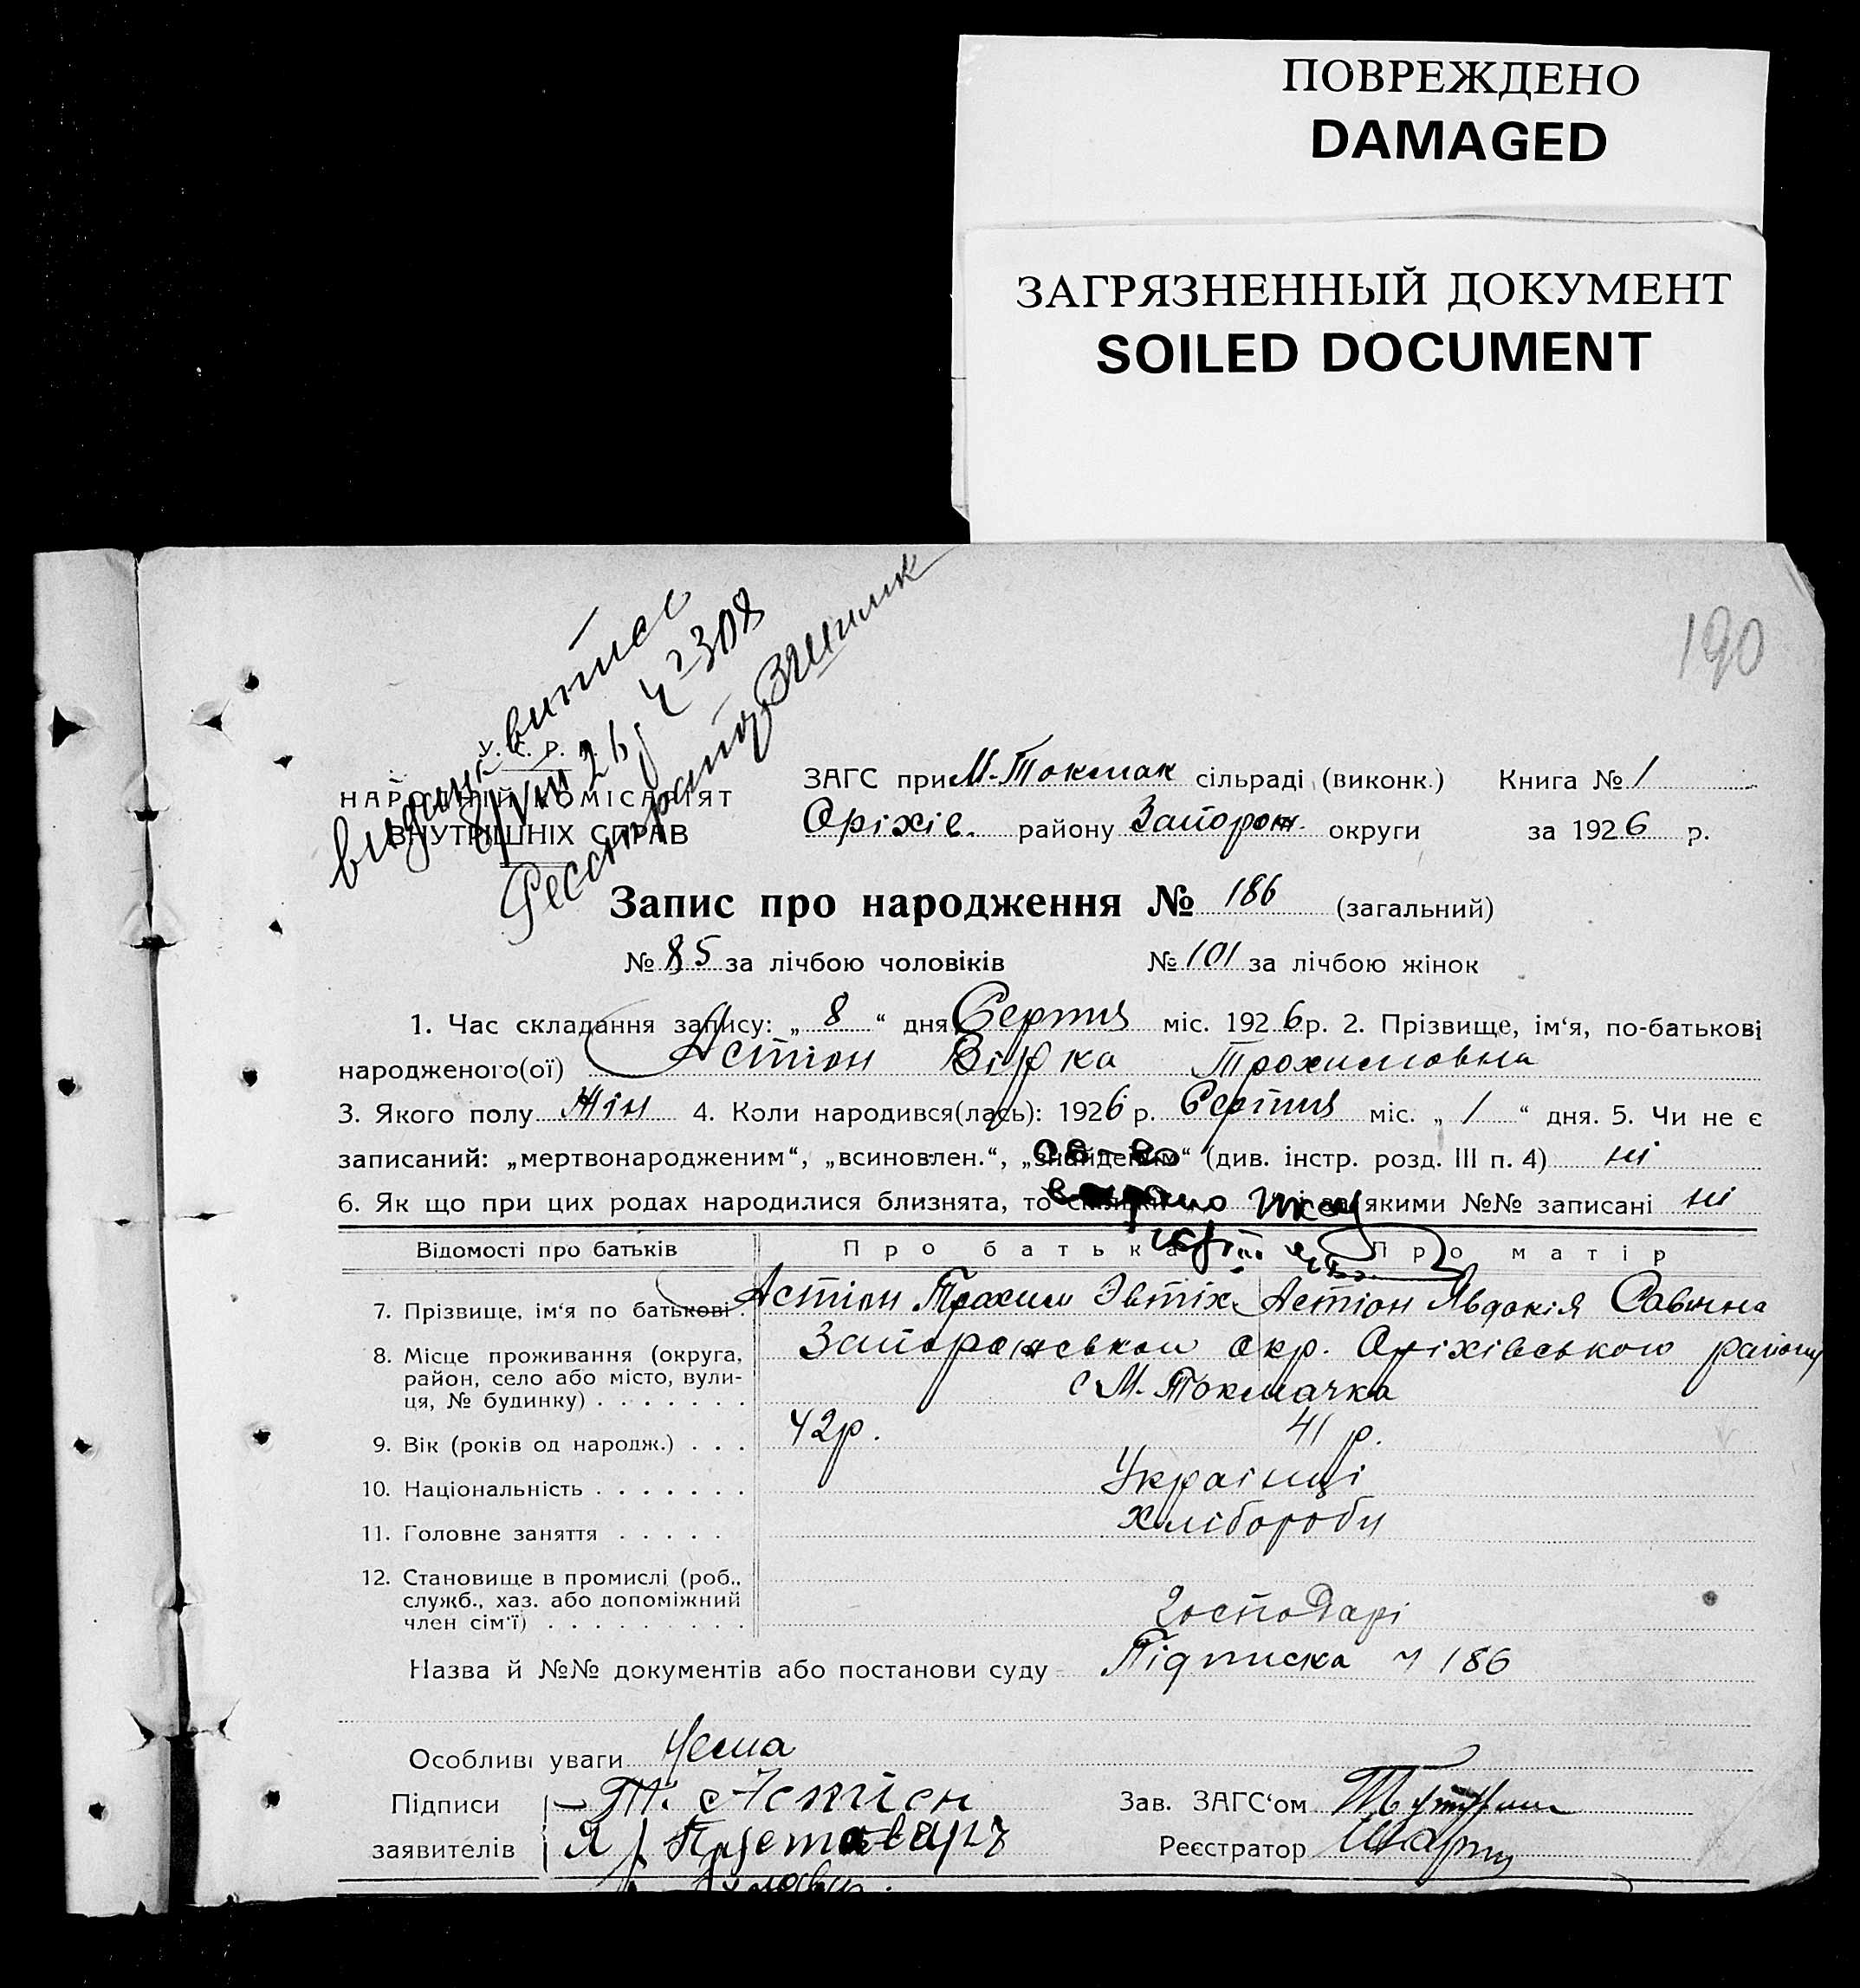 ПОВРЕЖДЕНО
DAMAGED
ЗАГРЯЗНЕННЫЙ ДОКУМЕНТ
SOILED DOCUMENT
190
видана витяс
8/VIII 26 ч 2308
У. С. Р. Р.
НАРОДНІЙ КОМІСАРІЯТ
ВНУТРІШНІХ СПРАВ
ЗАГС при М-Токмак сільраді (виконк.) Книга № 1
Оріхів. району Запорож. округи за 1926 р.
Запис про народження № 186 (загальний)
№ 85 за лічбою чоловіків № 101 за лічбою жінок
1. Час складання запису: „ 8 “ дня Серпня міс. 1926 р. 2. Прізвище, ім‘я, по-батькові
народженого(ої) Астіон Вірка Трохимовна
3. Якого полу Жін 4. Коли народився(лась): 1926 р. Серпня міс. „ 1 “ дня. 5. Чи не є
записаний: „мертвонародженим“, „всиновлен.“, „знайденим“ (див. інстр. розд. III п. 4) ні
6. Як що при цих родах народилися близнята, то скільки і за якими №№ записані ні
Відомості про батьків Про батька Про матір
7. Прізвище, ім‘я по батькові. Астіон Трохим Эвтіх. Астіон Явдокія Савична
8. Місце проживання (округа, Запорожськои окр. Оріхівського району
район, село або місто, вули-
ця, № будинку) . . . . . . . с М. Токмачка
9. Вік (років од народж.) . . . 42р. 41 р.
10. Національність . . . . . . . Украінці
11. Головне заняття . . . . . хлібороби
12. Становище в промислі (роб.,
служб., хаз. або допоміжний
член сім‘ї) . . . . . . . . . господарі
Назва й №№ документів або постанови суду Підписка ч 186
Особливі уваги Нема
Підписи Т. Астіон Зав. ЗАГС‘ом
заявителів Реєстратор